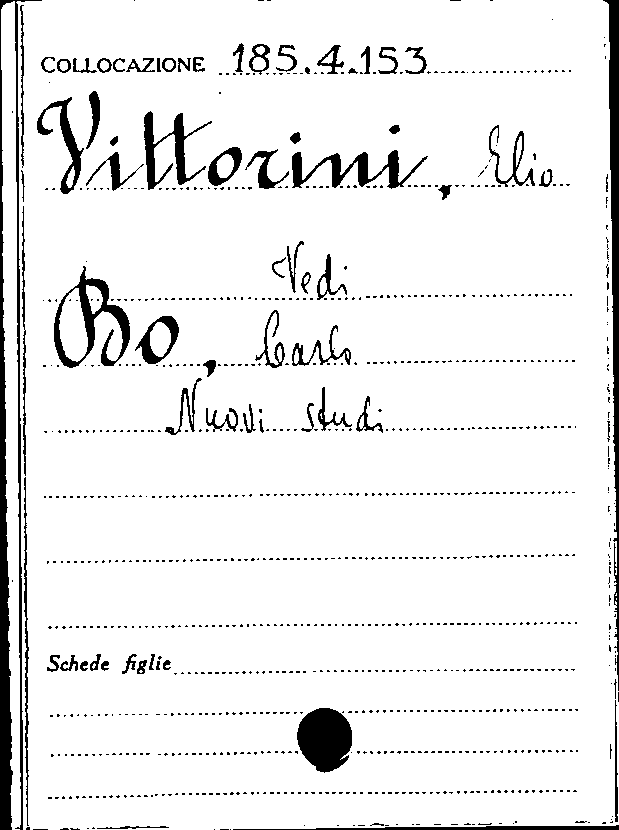 COLLOCAZIONE 185.4.153
Vittorini, Elio
Vedi
Bo, Carlo
Nuovi studi
Schede figlie